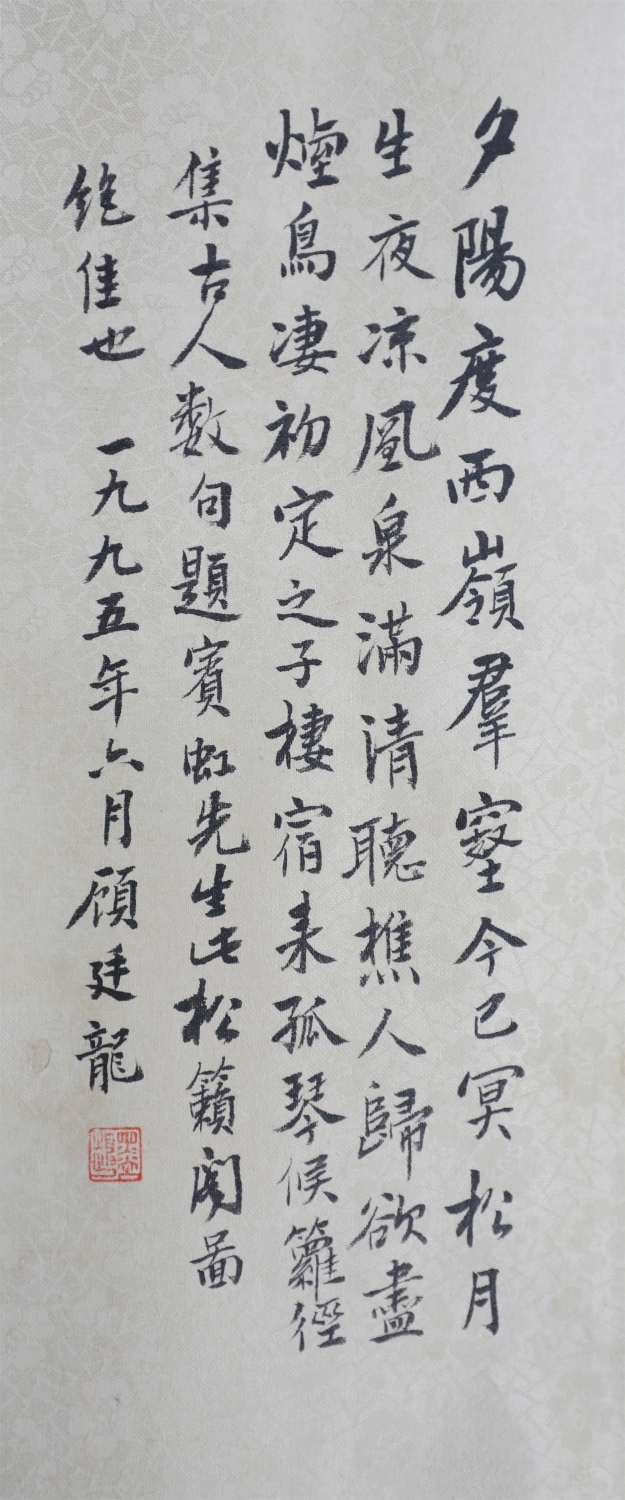 夕陽度西嶺羣壑今已冥松月
生夜凉風泉滿清聽樵人歸欲盡
煙鳥凄初定之子棲宿来孤琴候籮徑
集古人數句題賓虹先生此松籟閣圖
絶佳也 一九九五年六月顧廷龍